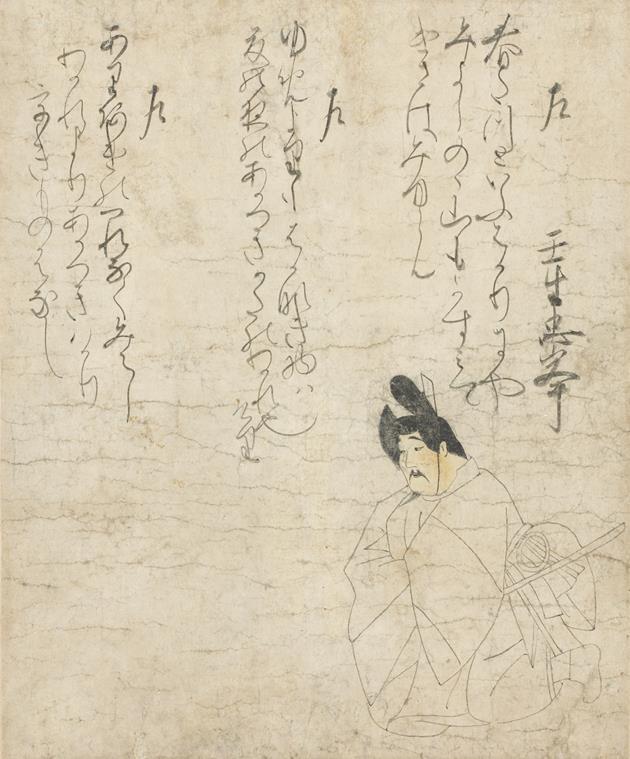 左
壬生忠岑
春たつといふはかりにや
みよしのゝ山もかすみて
けさはみゆらん
左
ゆめよりもはかなき物は
夏の夜のあかつきかたのわかれ
なりけり
左
ありあけのつれなくみえし
わかれよりあかつきはかり
うきものはなし